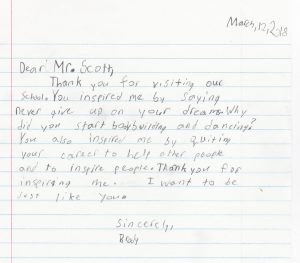 March, 12, 2018
Dear Mr. Scott,
Thank you for visiting our
school. You inspired me by saying
never give up on your dreams. Why
did you start bodybuilding and dancing?
You also inspired me by quiting
your career to help other people
and to inspire people. Thank you for
inspiring me. I want to be
Just like you.
Sincerely,